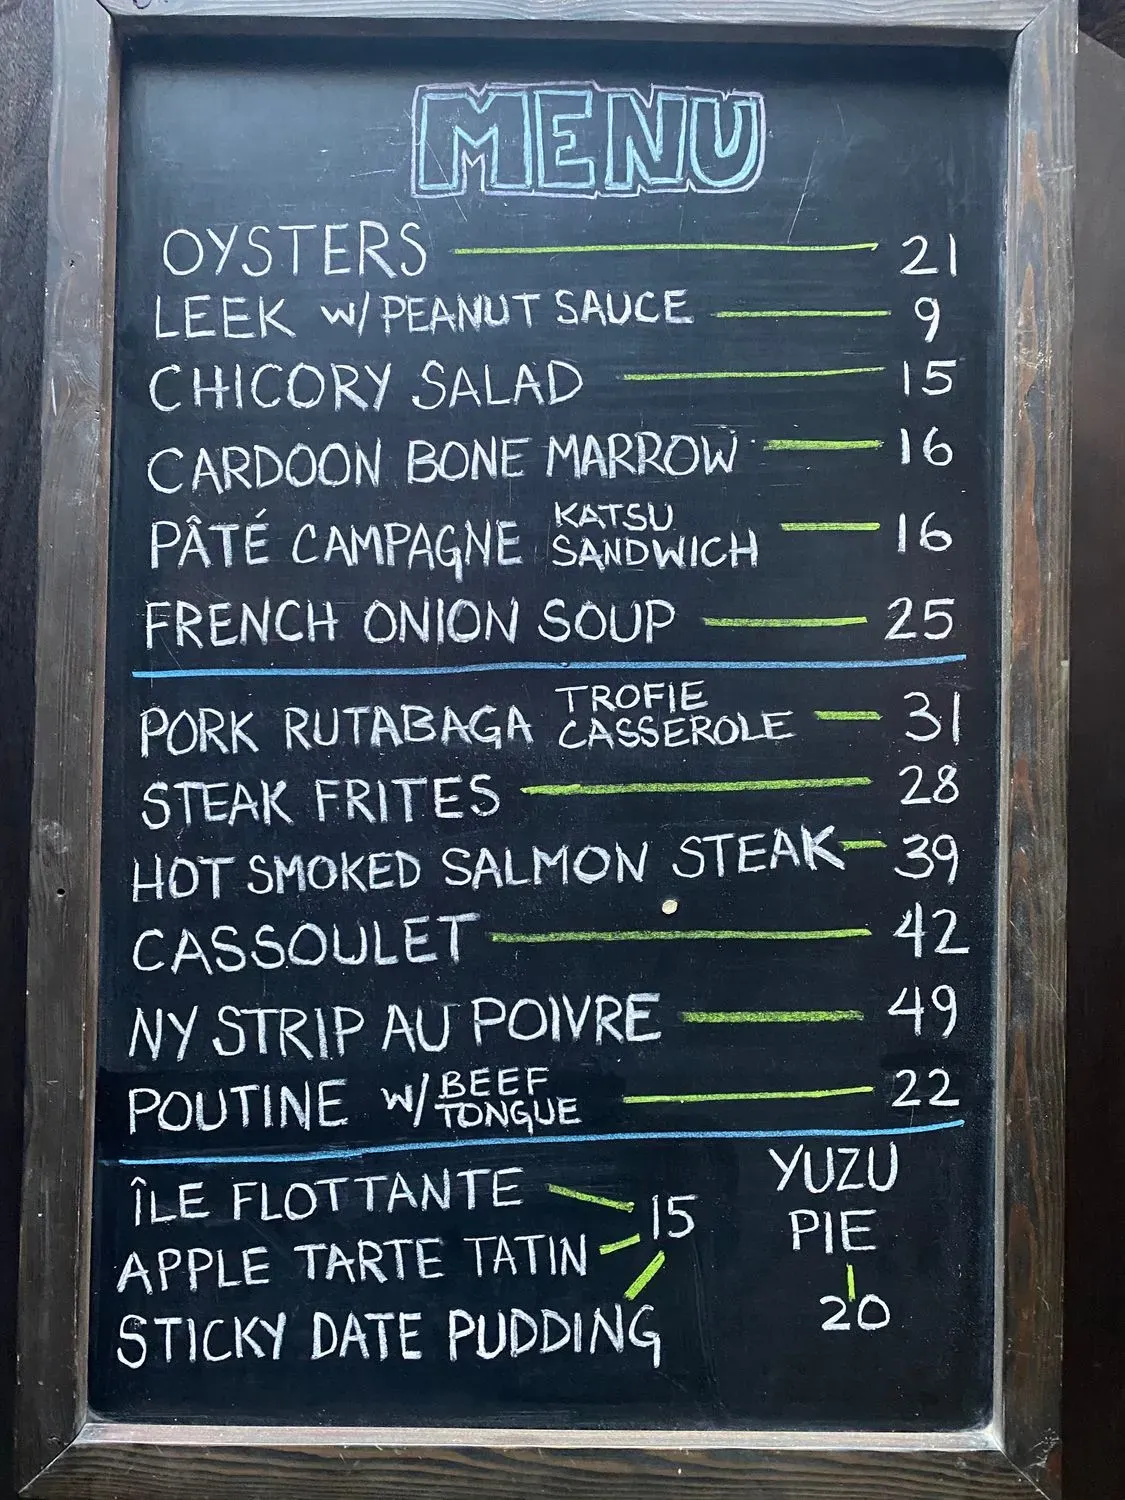 MENU
OYSTERS 21
LEEK W/ PEANUT SAUCE 9
CHICORY SALAD 15
CARDOON BONE MARROW 16
PÂTÉ CAMPAGNE KATSU SANDWICH 16
FRENCH ONION SOUP 25
PORK RUTABAGA TROFIE CASSEROLE 31
STEAK FRITES 28
HOT SMOKED SALMON STEAK 39
CASSOULET 42
NY STRIP AU POIVRE 49
POUTINE W/ BEEF TONGUE 22
ÎLE FLOTTANTE
APPLE TARTE TATIN
STICKY DATE PUDDING
15
YUZU
PIE
20